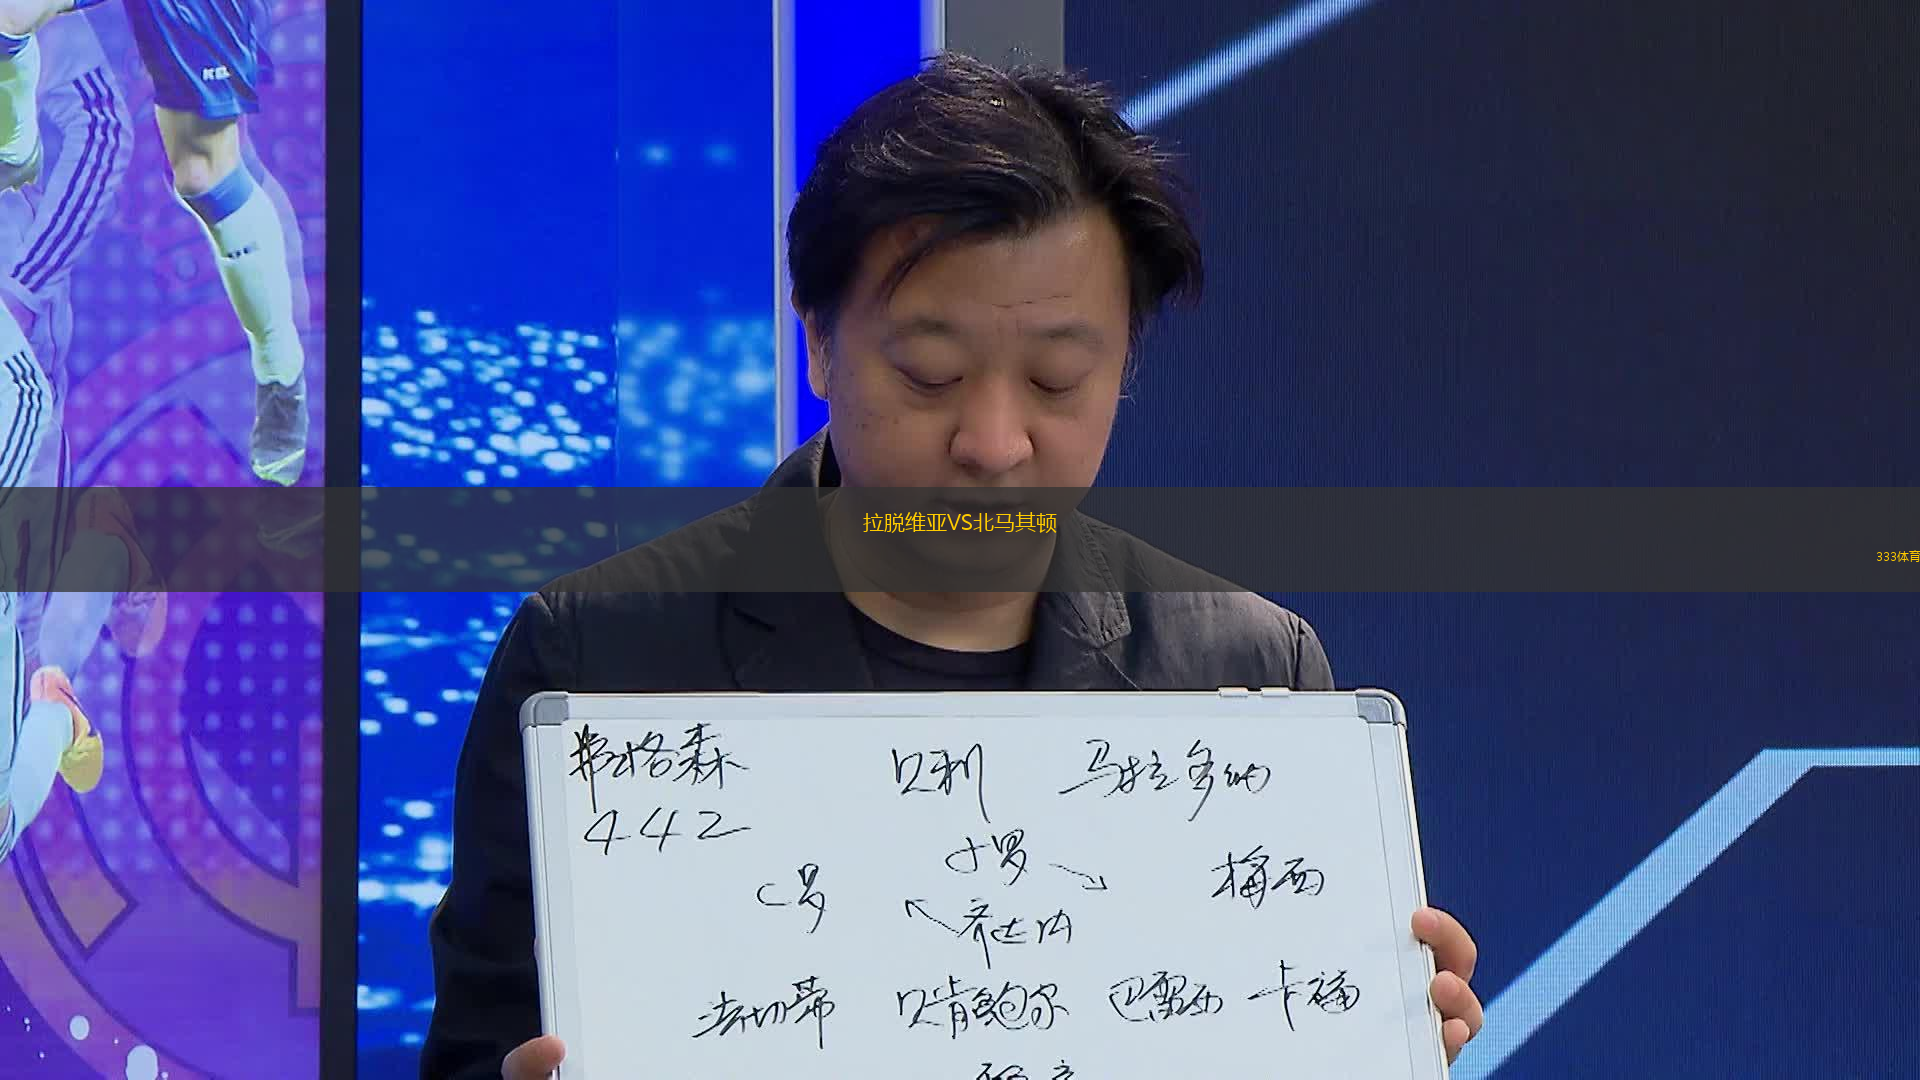 拉脱维亚VS北马其顿
333体育
弗格森 贝利 马拉多纳
442
小罗
C罗 梅西
齐达内
法切蒂 贝肯鲍尔 巴雷西 卡福